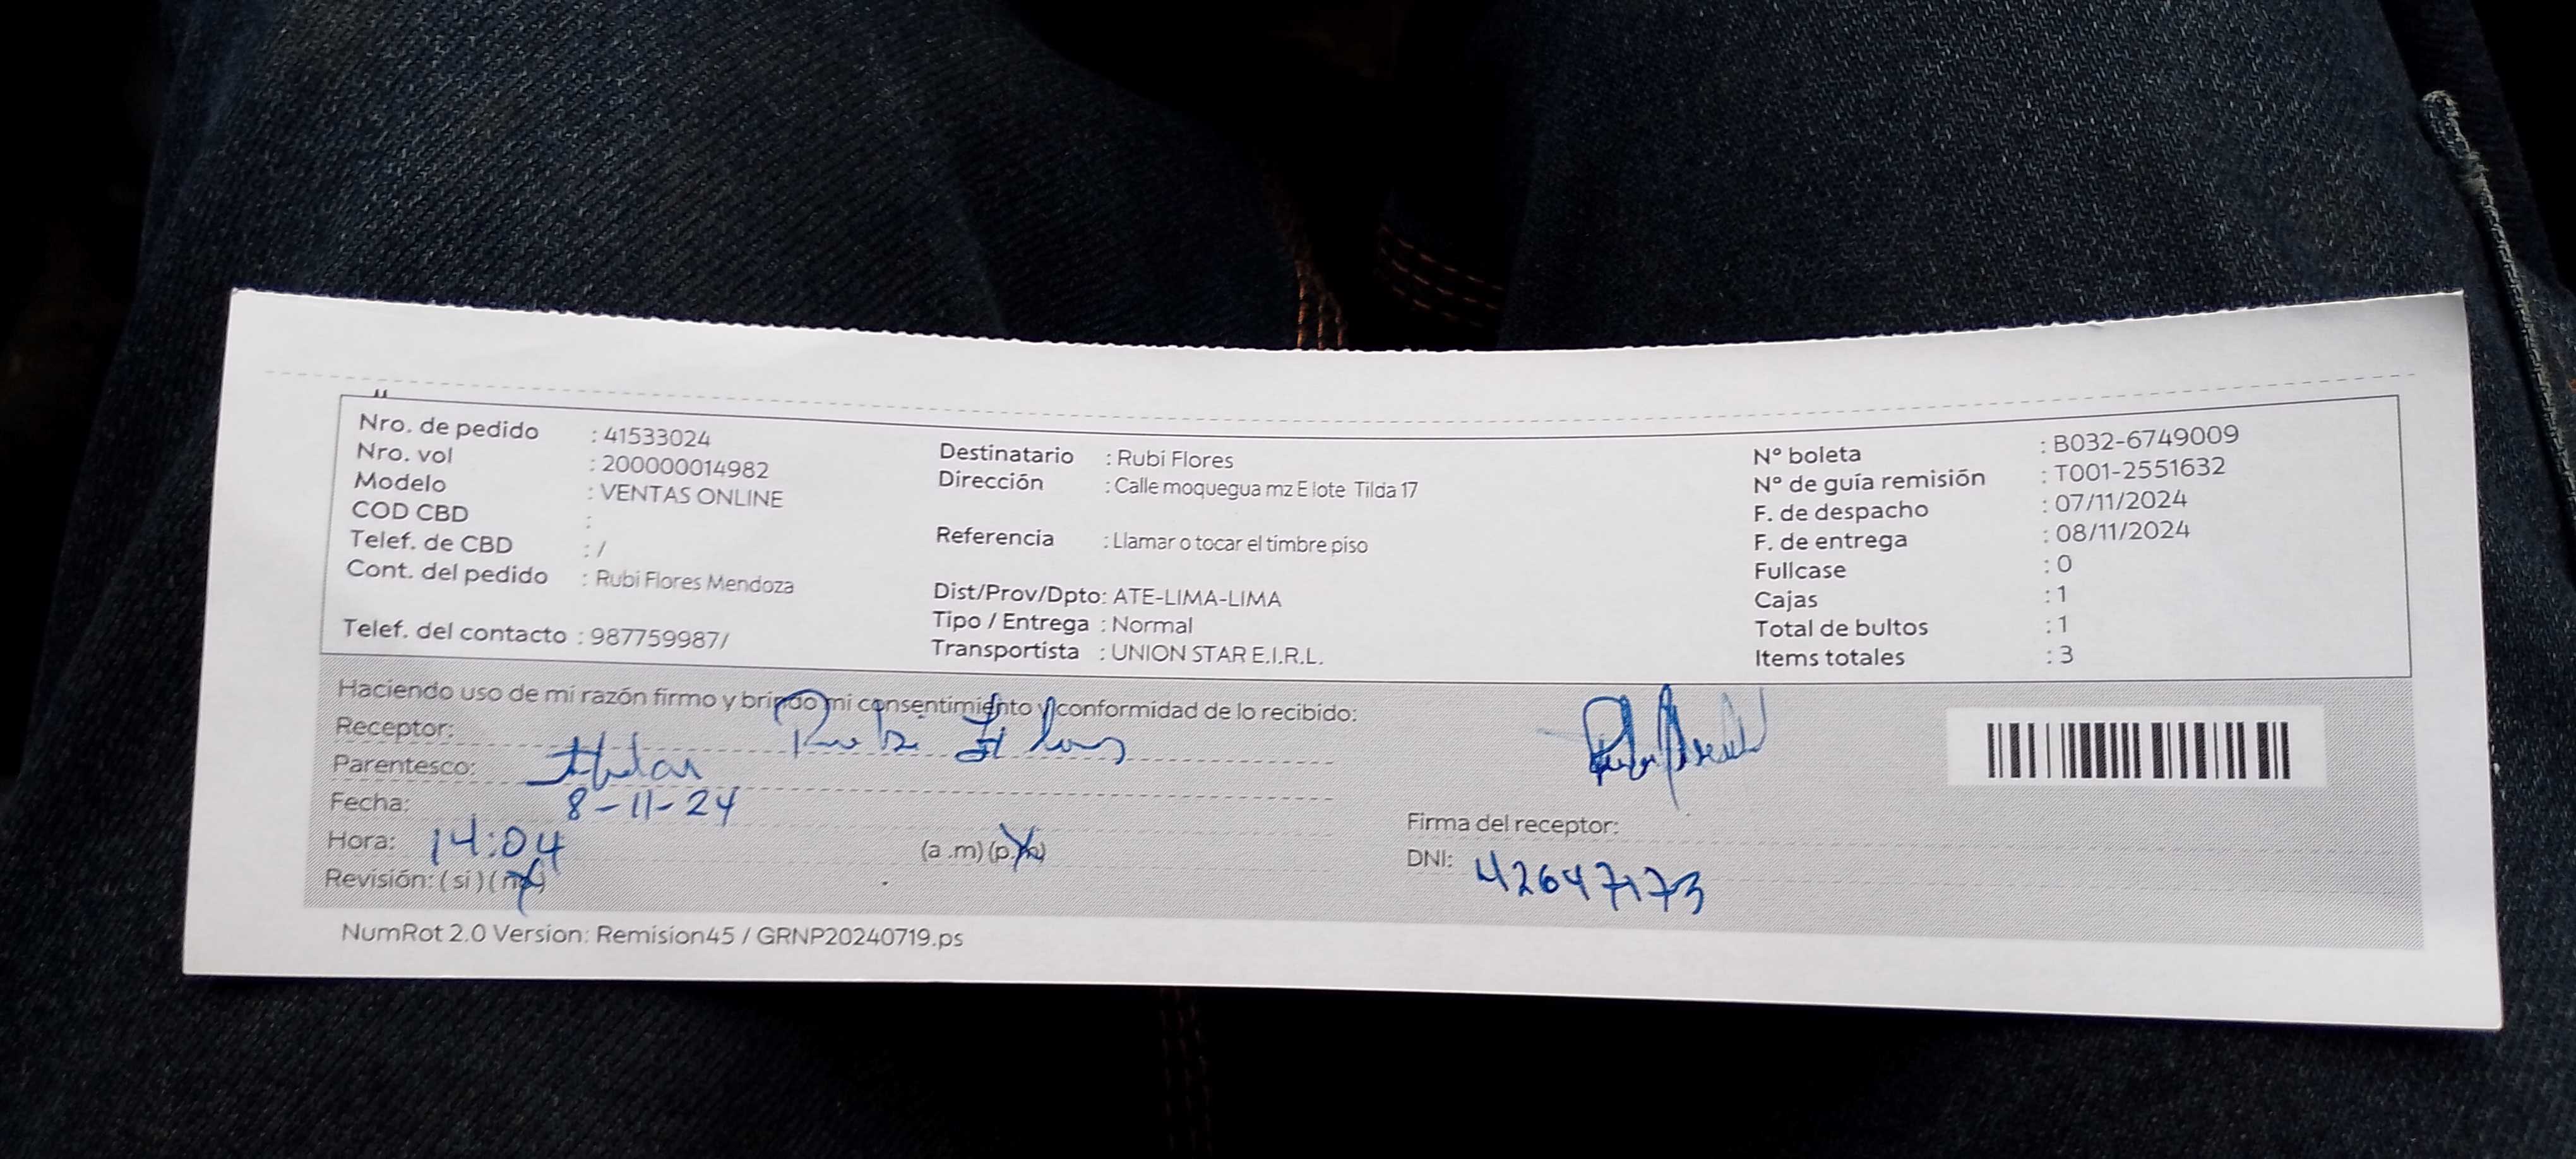 Nro. de pedido : 41533024
Nro. vol : 200000014982
Modelo : VENTAS ONLINE
COD CBD :
Telef. de CBD : /
Cont. del pedido : Rubi Flores Mendoza
Telef. del contacto : 987759987/
Destinatario : Rubi Flores
Dirección : Calle moquegua mz E lote Tilda 17
Referencia : Llamar o tocar el timbre piso
Dist/Prov/Dpto: ATE-LIMA-LIMA
Tipo / Entrega : Normal
Transportista : UNION STAR E.I.R.L.
N° boleta : B032-6749009
N° de guía remisión : T001-2551632
F. de despacho : 07/11/2024
F. de entrega : 08/11/2024
Fullcase : 0
Cajas : 1
Total de bultos : 1
Items totales : 3
Haciendo uso de mi razón firmo y brindo mi consentimiento y conformidad de lo recibido:
Receptor: Rubi Flores
Parentesco: titular
Fecha: 8-11-24
Hora: 14:04 (a .m) (p.m)
Revisión: ( si ) ( no )
Firma del receptor:
DNI: 42647173
NumRot 2.0 Version: Remision45 / GRNP20240719.ps